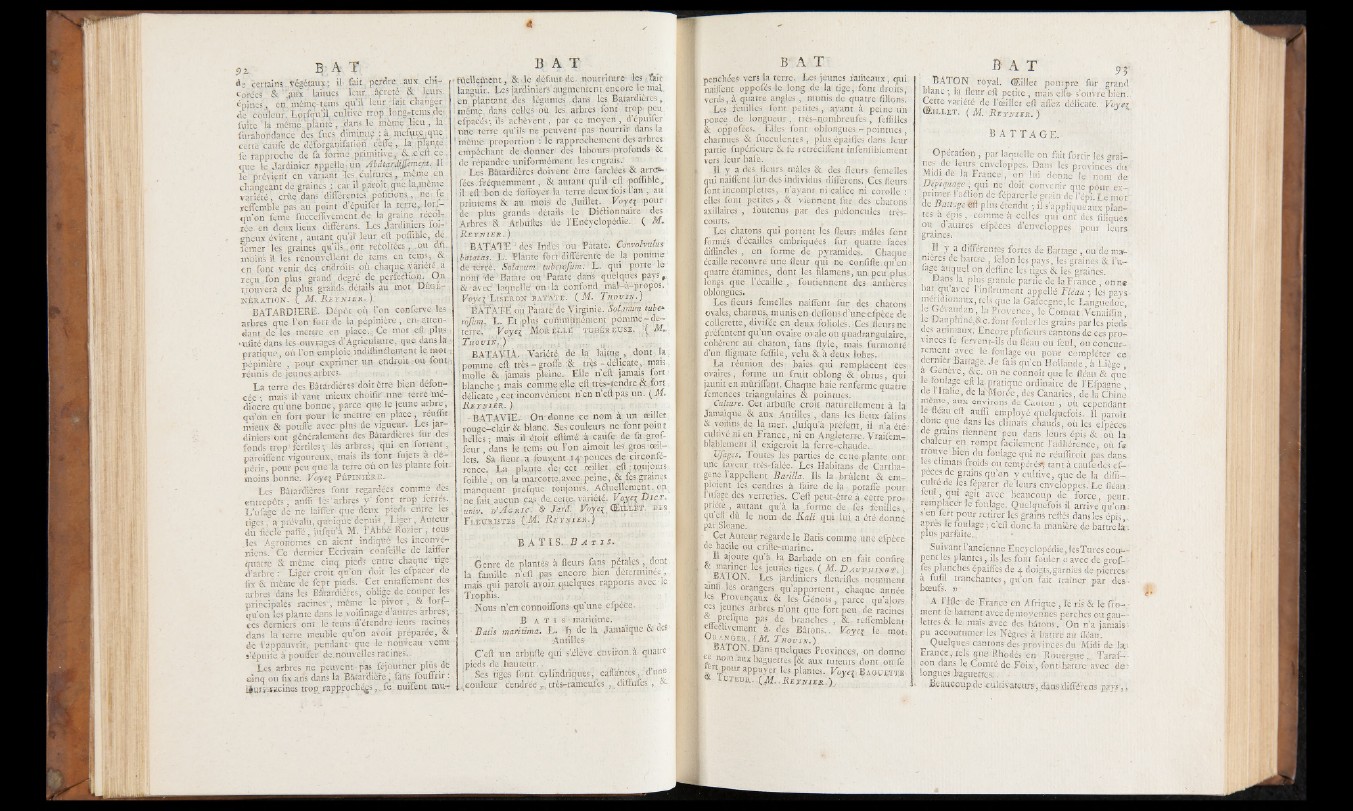 92
B A T
de certains végétaux; il fait perdre aux chi-
corées & aux laitues leur âcreté & leurs
épines, en même-tems qu'il leur fait changer
de couleur. Lorsqu'il cultive trop long-tems de
suite la même plante, dans le même lieu, la
surabondance des sucs diminue; à mesure que
cette cause de désorganisation cesse, la plante
se rapproche de sa forme primitive, & c'est ce
que le Jardinier appelle un Abâtardissement. Il
le prévient en variant les cultures, même en
changeant de graines; car il paroît que la même
variété, crûe dans différentes positions, ne se
ressemble pas au point d'épuiser la terre, lors-
qu'on seme successivement de la graine récol-
tée en deux lieux différens. Les Jardiniers soi-
gneux évitent, autant qu'il leur est possible, de
semer les graines qu'ils ont récoltées, ou du
moins il les renouvellent de tems en tems, &
en font venir des endroits où chaque variété a
reçu son plus grand degré de perfection. On
trouvera de plus grands détails au mot Dégé-
NÉRATION. ( M. REYNIER. )
BATARDIERE. Dépôt où l'on conserve les
arbres que l'on sort de la pépinière, en atten-
dant de les mettre en place. Ce mot est plus
usité dans les ouvrages d'Agriculture, que dans la
pratique, où l'on emploie indistinctement le mot
pépinière, pour exprimer un endroit où sont
réunis de jeunes arbres.
La terre des Bâtardières doit être bien défon-
cée; mais il vaut mieux choisir une terre mé-
diocre qu'une bonne, parce que le jeune arbre,
qu'on en sort pour le mettre en place, réussit
mieux & pousse avec plus de vigueur. Les jar-
diniers ont généralement des Bâtardières sur des
fonds trop fertiles; les arbres, qui en sortent,
paroissent vigoureux, mais ils sont sujets à dé-
périr, pour peu que la terre où on les plante soit
moins bonne. Voyez PÉPINIÈRE.
Les Bâtardières sont regardées comme des
entrepôts, aussi les arbres y sont trop serrés.
L'usage de ne laisser que deux pieds entre les
tiges, a prévalu, quoique depuis Liger, Auteur
du siècle passé, jusqu'à M. l'Abbé Rozier, tous
les Agronomes en aient indiqué les inconvé-
niens. Ce dernier Ecrivain conseille de laisser
quatre & même cinq pieds entre chaque tige
d'arbre: Liger croit qu'on doit les espacer de
six & même de sept pieds. Cet entassement des
arbres dans les Bâtardières, oblige de couper les
principales racines, même le pivot, & lors-
qu'on les plante dans le voisinage d'autres arbres,
ces derniers ont le tems d'étendre leurs racines
dans la terre meuble qu'on avoit préparée, &
de l'appauvrir, pendant que le nouveau venu
s'épuise à pousser de nouvelles racines.
Les arbres ne peuvent pas séjourner plus de
cinq ou six ans dans la Bâtardière, sans souffrir:
leurs racines trop rapprochées, se nuisent mu-
B A T
tuellement, & le défaut de nourriture les fait
languir. Les jardiniers augmentent encore le mal,
en plantant des légumes dans les Batardières,
même dans celles où les arbres sont trop peu
espacés; ils achèvent, par ce moyen, d'épuiser
une terre qu'ils ne peuvent pas nourrir dans la
même proportion: le rapprochement des arbres
empêchant de donner des labours profonds &
de répandre uniformément les engrais.
Les Bâtardières doivent être sarclées & arro-
sées fréquemment, & autant qu'il est possible,
il est bon de fossoyer la terre deux fois l'an, au
printems & au mois de Juillet. Voyez pour
de plus grands détails le Dictionnaire des
Arbres & Arbustes de l'Encyclopédie. ( M.
REYNIER. )
BATATE des Indes ou Patate. Convolvulus
batatas. L. Plante fort différente de la pomme
de terre. Solanum tuberosum. L. qui porte le
nom de Batate ou Patate dans quelques pays,
& avec laquelle on la confond mal-à-propos.
Voyez LISERON BATATE. ( M. THOUIN. )
BATATE ou Patate de Virginie. Solanum tube-
rosum. L. Et plus communément pomme-de-
terre. Voyez MORELLE TUBÉREUSE. ( M.
THOUIN. )
BATAVIA. Variété de la laitue, dont la
pomme est très-grosse & très-délicate, mais
molle & jamais pleine. Elle n'est jamais fort
blanche; mais comme elle est très-tendre & fort
délicate, cet inconvénient n'en n'est pas un. ( M.
REYNIER. )
BATAVIE. On donne ce nom à un œillet
rouge-clair & blanc. Ses couleurs ne sont point
belles; mais il étoit estimé à cause de sa gros-
seur, dans le tems où l'on aimoit les gros œil-
lets. Sa fleur a souvent 14 pouces de circonfé-
rence. La plante de cet œillet est toujours
foible, on la marcotte avec peine, & ses graines
manquent presque toujours. Actuellement, on
ne fait aucun cas de cette variété. Voyez DICT.
univ. D'AGRIC. & Jard. Voyez ŒILLET. DES
FLEURISTES ( M. REYNIER. )
B A T I S. BATIS.
Genre de plantes à fleurs sans pétales, dont
la famille n'est pas encore bien déterminée,
mais qui paroît avoir quelques rapports avec le
Trophis.
Nous n'en connoissons qu'une espèce.
B A T I S maritime.
Batis maritima. L. ♄ de la Jamaïque & des
Antilles
C'est un arbuste qui s'élève environ à quatre
pieds de hauteur.
Ses tiges sont cylindriques, cassantes, d'une
couleur cendrée, très-rameuses, diffuses, &
B A T
penchées vers la terre. Les jeunes rameaux, qui
naissent opposés le long de la tige, sont droits,
verds, à quatre angles, munis de quatre sillons.
Les feuilles sont petites, ayant à peine un
pouce de longueur, très-nombreuses, sessiles
& opposées. Elles sont oblongues-pointues,
charnues & succulentes, plus épaisses dans leur
partie supérieure & se rétrécissent insensiblement
vers leur base.
Il y a des fleurs mâles & des fleurs femelles
qui naissent sur des individus différens. Ces fleurs
sont incomplettes, n'ayant ni calice ni corolle:
elles sont petites, & viennent sur des chatons
axillaires, soutenus par des pédoncules très-
courts.
Les chatons qui portent les fleurs mâles sont
formés d'écailles embriquées sur quatre faces
distinctes, en forme de pyramides. Chaque
écaille recouvre une fleur qui ne consiste qu'en
quatre étamines, dont les filamens, un peu plus
longs que l'écaille, soutiennent des anthères
oblongues.
Les fleurs femelles naissent sur des chatons
ovales, charnus, munis en dessous d'une espèce de
collerette, divisée en deux folioles. Ces fleurs ne
présentent qu'un ovaire ovale ou quadrangulaire,
cohérent au chaton, sans style, mais surmonté
d'un stigmate sessile, velu & à deux lobes.
La réunion des baies qui remplacent ces
ovaires, forme un fruit oblong & obtus, qui
jaunit en mûrissant. Chaque baie renferme quatre
semences triangulaires & pointues.
Culture. Cet arbuste croît naturellement à la
Jamaïque & aux Antilles, dans les lieux salins
& voisins de la mer. Jusqu'à présent, il n'a été
cultivé ni en France, ni en Angleterre. Vraisem-
blablement il exigeroit la serre-chaude.
Usages. Toutes les parties de cette plante ont
une saveur très-salée. Les Habitans de Cartha-
gene l'appellent Barilla. Ils la brûlent & em-
ploient les cendres à faire de la potasse pour
l'usage des verreries. C'est peut-être à cette pro-
priété, autant qu'à la forme de ses feuilles,
qu'est dû le nom de Kali qui lui a été donné
par Sloane.
Cet Auteur regarde le Batis comme une espèce
de bacile ou criste-marine.
Il ajoute qu'à la Barbade on en fait confire
& mariner les jeunes tiges. ( M. DAUPHINOT. )
BATON. Les jardiniers fleuristes nomment
ainsi les orangers qu'apportent, chaque année
les Provençaux & les Génois, parce qu'alors
ces jeunes arbres n'ont que fort peu de racines
& presque pas de branches, & ressemblent
effectivement à des Bâtons. Voyez le mot
ORANGER. ( M. THOUIN. )
BATON. Dans quelques Provinces, on donne
ce nom aux baguettes & aux tuteurs dont on se
sert pour appuyer les plantes. Voyez BAGUETTE
& TUTEUR. ( M. REYNIER. )
B A T
93
BATON royal. Œillet pourpre sur grand
blanc; sa fleur est petite, mais elle s'ouvre bien.
Cette variété de l'œillet est assez délicate. Voyez
ŒILLET. ( M. REYNIER. )
B A T T A G E.
Opération, par laquelle on fait sortir les grai-
nes de leurs enveloppes. Dans les provinces du
Midi de la France, on lui donne le nom de
Dépiquage, qui ne doit convenir que pour ex-
primer l'action de séparer le grain de l'épi. Le mot
de Battage est plus étendu; il s'applique aux plan-
tes à épis, comme à celles qui ont des siliques
ou d'autres espèces d'enveloppes pour leurs
graines.
Il y a différentes sortes de Battage, ou de ma-
nières de battre, selon les pays, les graines & l'u-
sage auquel on destine les tiges & les graines.
Dans la plus grande partie de la France, on ne
bat qu'avec l'instrument appellé Fléau; les pays
méridionaux, tels que la Gascogne, le Languedoc,
le Gévaudan, la Provence, le Comtat Venaissin,
le Dauphiné, &c. font fouler les grains par les pieds
des animaux. Encore plusieurs cantons de ces pro-
vinces se servent-ils du fléau ou seul, ou concur-
remment avec le foulage ou pour compléter ce
dernier Battage. Je sais qu'en Hollande, à Liège,
à Genève, &c. on ne connoît que le fléau & que
le foulage est la pratique ordinaire de l'Espagne,
de l'Italie, de la Morée, des Canaries, de la Chine
même, aux environs de Canton, où cependant
le fléau est aussi employé quelquefois. Il paroît
donc que dans les climats chauds, où les espèces
de grains tiennent peu dans leurs épis & où la
chaleur en rompt facilement l'adhérence, on se
trouve bien du foulage qui ne réussiroit pas dans
les climats froids ou tempérés, tant à cause des es-
pèces de grains qu'on y cultive, que de la diffi-
culté de les séparer de leurs enveloppes. Le fléau
seul, qui agit avec beaucoup de force, peut
remplacer le foulage. Quelquefois il arrive qu'on
s'en sert pour retirer les grains restés dans les épis,
après le foulage; c'est donc la manière de battre la
plus parfaite.
Suivant l'ancienne Encyclopédie, les Turcs cou-
pent les plantes, ils les font fouler « avec de gros-
ses planches épaisses de 4 doigts, garnies de pierres
à fusil tranchantes, qu'on fait traîner par des
bœufs. »
A l'Isle de France en Afrique, le ris & le fro-
ment se battent avec de moyennes perches ou gau-
lettes & le maïs avec des bâtons. On n'a jamais
pu accoutumer les Nègres à battre au fléau.
Quelques cantons des provinces du Midi de la
France, tels que Rhodès en Rouergue, Taras-
con dans le Comté de Foix, font battre avec de
longues baguettes.
Beaucoup de cultivateurs, dans différens pays,